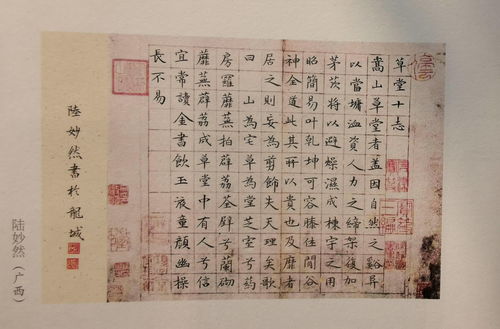 草堂十志
嵩山草堂者蓋因自然之谿阜
以當墉洫資人力之締架復加
茅茨將以避燥濕成棟宇之用
昭簡易叶乾坤可容膝休閒谷
神全道此其所以貴也及靡者
居之則妄為剪飾失天理矣歌
曰 山為宅草為堂芝室兮葯
房羅蘼蕪拍薜荔荃壁兮蘭砌
蘼蕪薜荔成草堂中有人兮信
宜常讀金書飲玉液童顏幽操
長不易
陸妙然書於龍城
陆妙然（广西）